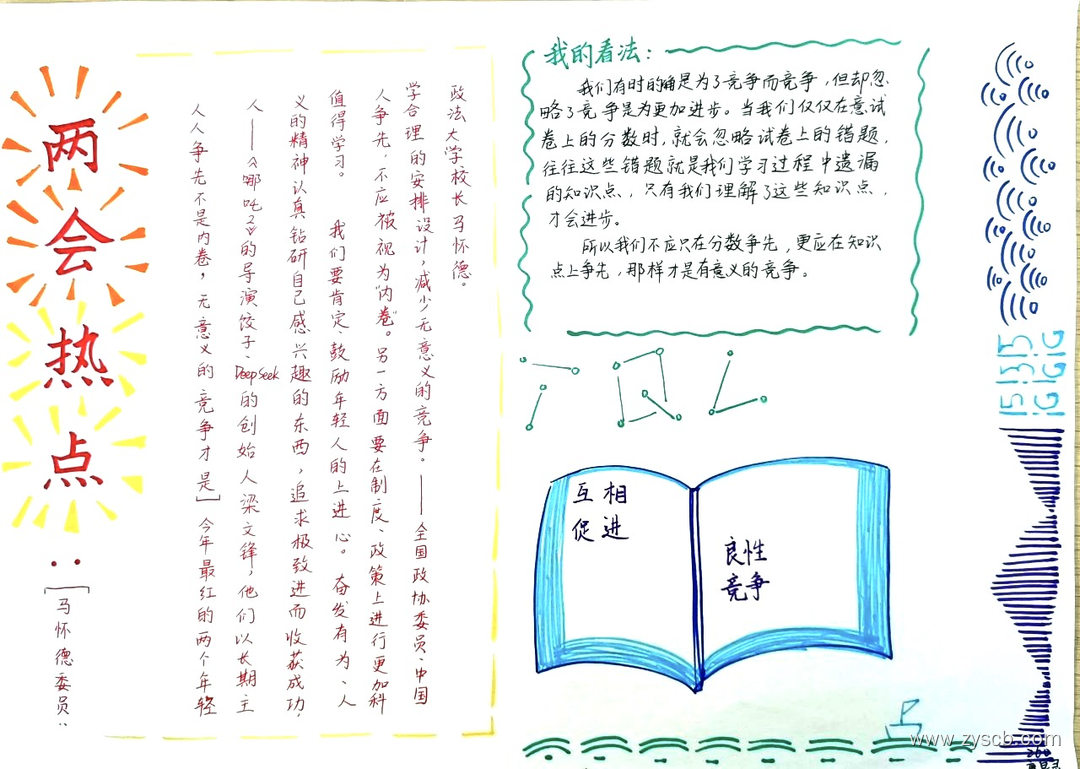 两会热点:
[马怀德委员:
人人争先不是内卷,无意义的竞争才是]今年最红的两个年轻
人——《哪吒2》的导演饺子、DeepSeek的创始人梁文锋,他们以长期主
义的精神认真钻研自己感兴趣的东西,追求极致进而收获成功,
值得学习。 我们要肯定、鼓励年轻人的上进心。奋发有为、人
人争先,不应被视为“内卷”。另一方面要在制度、政策上进行更加科
学合理的安排设计,减少无意义的竞争。——全国政协委员、中国
政法大学校长马怀德。
我的看法:
我们有时的确是为了竞争而竞争,但却忽
略了竞争是为更加进步。当我们仅仅在意试
卷上的分数时,就会忽略试卷上的错题,
往往这些错题就是我们学习过程中遗漏
的知识点,只有我们理解了这些知识点,
才会进步。
所以我们不应只在分数争先,更应在知识
点上争先,那样才是有意义的竞争。
互相
促进
良性
竞争
www.zyscb.com